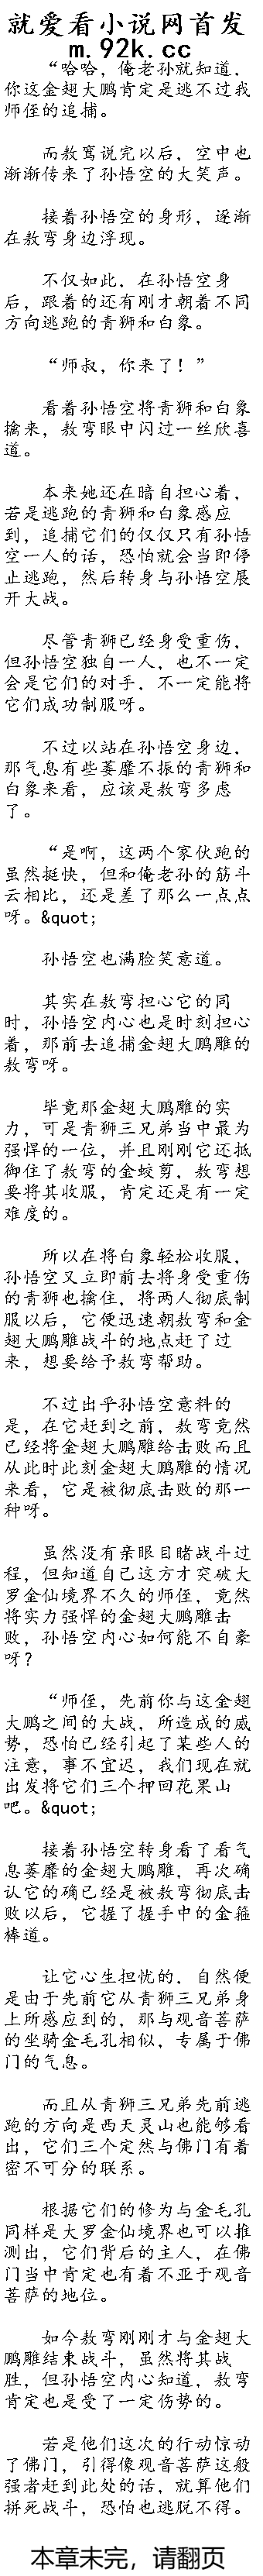 就爱看小说网首发
m.92k.cc
“哈哈，俺老孙就知道，
你这金翅大鹏肯定是逃不过我
师侄的追捕。
而敖鸾说完以后，空中也
渐渐传来了孙悟空的大笑声。
接着孙悟空的身形，逐渐
在敖弯身边浮现。
不仅如此，在孙悟空身
后，跟着的还有刚才朝着不同
方向逃跑的青狮和白象。
“师叔，你来了！”
看着孙悟空将青狮和白象
擒来，敖弯眼中闪过一丝欣喜
道。
本来她还在暗自担心着，
若是逃跑的青狮和白象感应
到，追捕它们的仅仅只有孙悟
空一人的话，恐怕就会当即停
止逃跑，然后转身与孙悟空展
开大战。
尽管青狮已经身受重伤，
但孙悟空独自一人，也不一定
会是它们的对手，不一定能将
它们成功制服呀。
不过以站在孙悟空身边，
那气息有些萎靡不振的青狮和
白象来看，应该是敖弯多虑
了。
“是啊，这两个家伙跑的
虽然挺快，但和俺老孙的筋斗
云相比，还是差了那么一点点
呀。&quot;
孙悟空也满脸笑意道。
其实在敖弯担心它的同
时，孙悟空内心也是时刻担心
着，那前去追捕金翅大鹏雕的
敖弯呀。
毕竟那金翅大鹏雕的实
力，可是青狮三兄弟当中最为
强悍的一位，并且刚刚它还抵
御住了敖弯的金蛟剪，敖弯想
要将其收服，肯定还是有一定
难度的。
所以在将白象轻松收服，
孙悟空又立即前去将身受重伤
的青狮也擒住，将两人彻底制
服以后，它便迅速朝敖弯和金
翅大鹏雕战斗的地点赶了过
来，想要给予敖弯帮助。
不过出乎孙悟空意料的
是，在它赶到之前，敖弯竟然
已经将金翅大鹏雕给击败而且
从此时此刻金翅大鹏雕的情况
来看，它是被彻底击败的那一
种呀。
虽然没有亲眼目睹战斗过
程，但知道自己这方才突破大
罗金仙境界不久的师侄，竟然
将实力强悍的金翅大鹏雕击
败，孙悟空内心如何能不自豪
呀？
“师侄，先前你与这金翅
大鹏之间的大战，所造成的威
势，恐怕已经引起了某些人的
注意，事不宜迟，我们现在就
出发将它们三个押回花果山
吧。&quot;
接着孙悟空转身看了看气
息萎靡的金翅大鹏雕，再次确
认它的确已经是被敖弯彻底击
败以后，它握了握手中的金箍
棒道。
让它心生担忧的，自然便
是由于先前它从青狮三兄弟身
上所感应到的，那与观音菩萨
的坐骑金毛孔相似，专属于佛
门的气息。
而且从青狮三兄弟先前逃
跑的方向是西天灵山也能够看
出，它们三个定然与佛门有着
密不可分的联系。
根据它们的修为与金毛孔
同样是大罗金仙境界也可以推
测出，它们背后的主人，在佛
门当中肯定也有着不亚于观音
菩萨的地位。
如今敖弯刚刚才与金翅大
鹏雕结束战斗，虽然将其战
胜，但孙悟空内心知道，敖弯
肯定也是受了一定伤势的。
若是他们这次的行动惊动
了佛门，引得像观音菩萨这般
强者赶到此处的话，就算他们
拼死战斗，恐怕也逃脱不得。
本章未完，请翻页